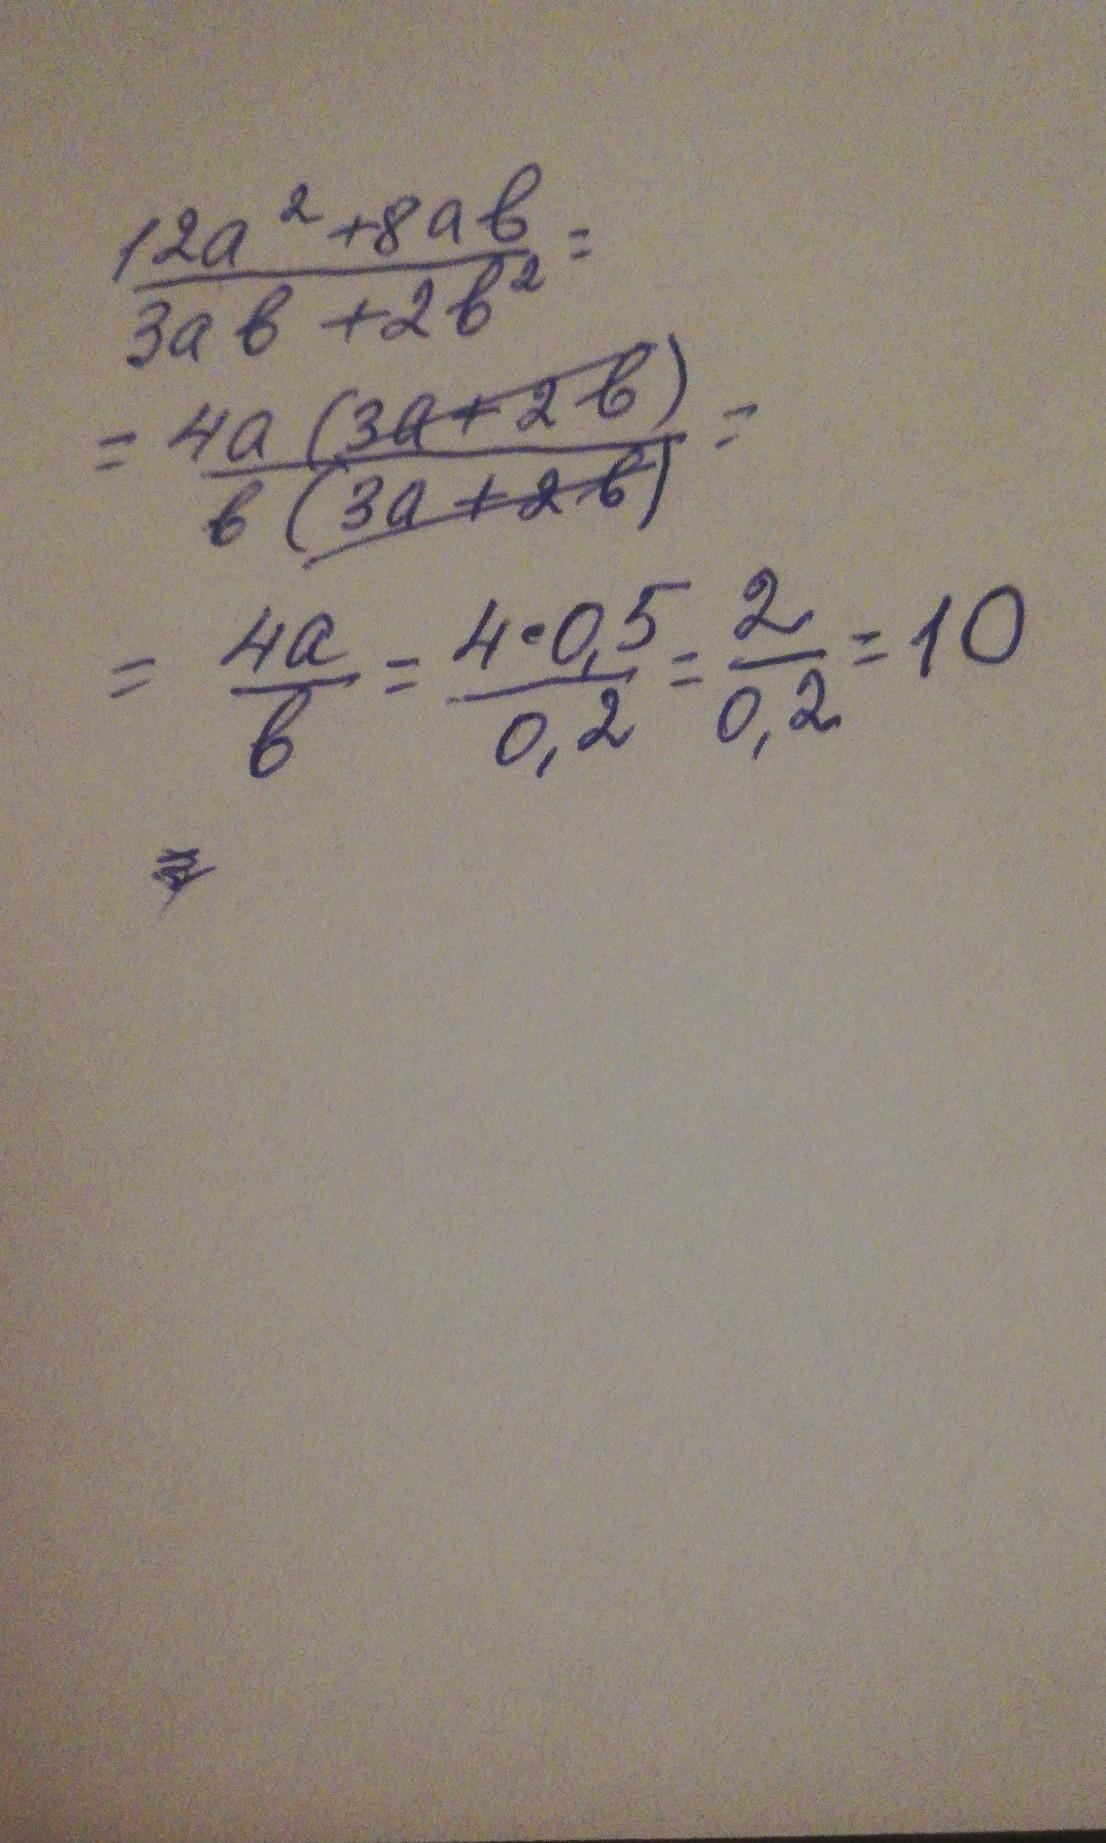 12a² + 8ab / 3ab + 2b² =
= 4a (3a + 2b) / b (3a + 2b) =
= 4a / b = 4 · 0,5 / 0,2 = 2 / 0,2 = 10